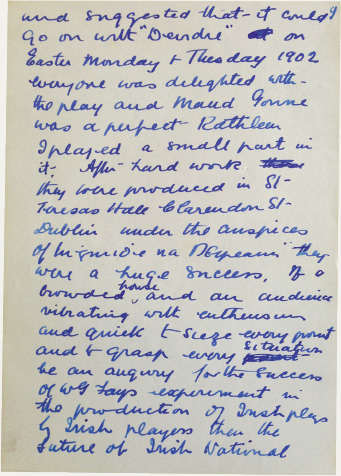 and suggested that it could
go on with "Deirdre" on
Easter Monday & Tuesday 1902
everyone was delighted with
the play and Maud Gonne
was a perfect Kathleen
I played a small part in
it. After hard work
they were produced in St-
Teresas Hall Clarendon St-
Dublin under the auspices
of Inginidie na hEireann" they
were a huge success, If a
crowded house and an audience
vibrating with enthusiasm
and quick to sieze every point
and to grasp every situation
be an augury for the success
of W G Fays experiment in
the production of Irish plays
by Irish players then the
future of Irish National